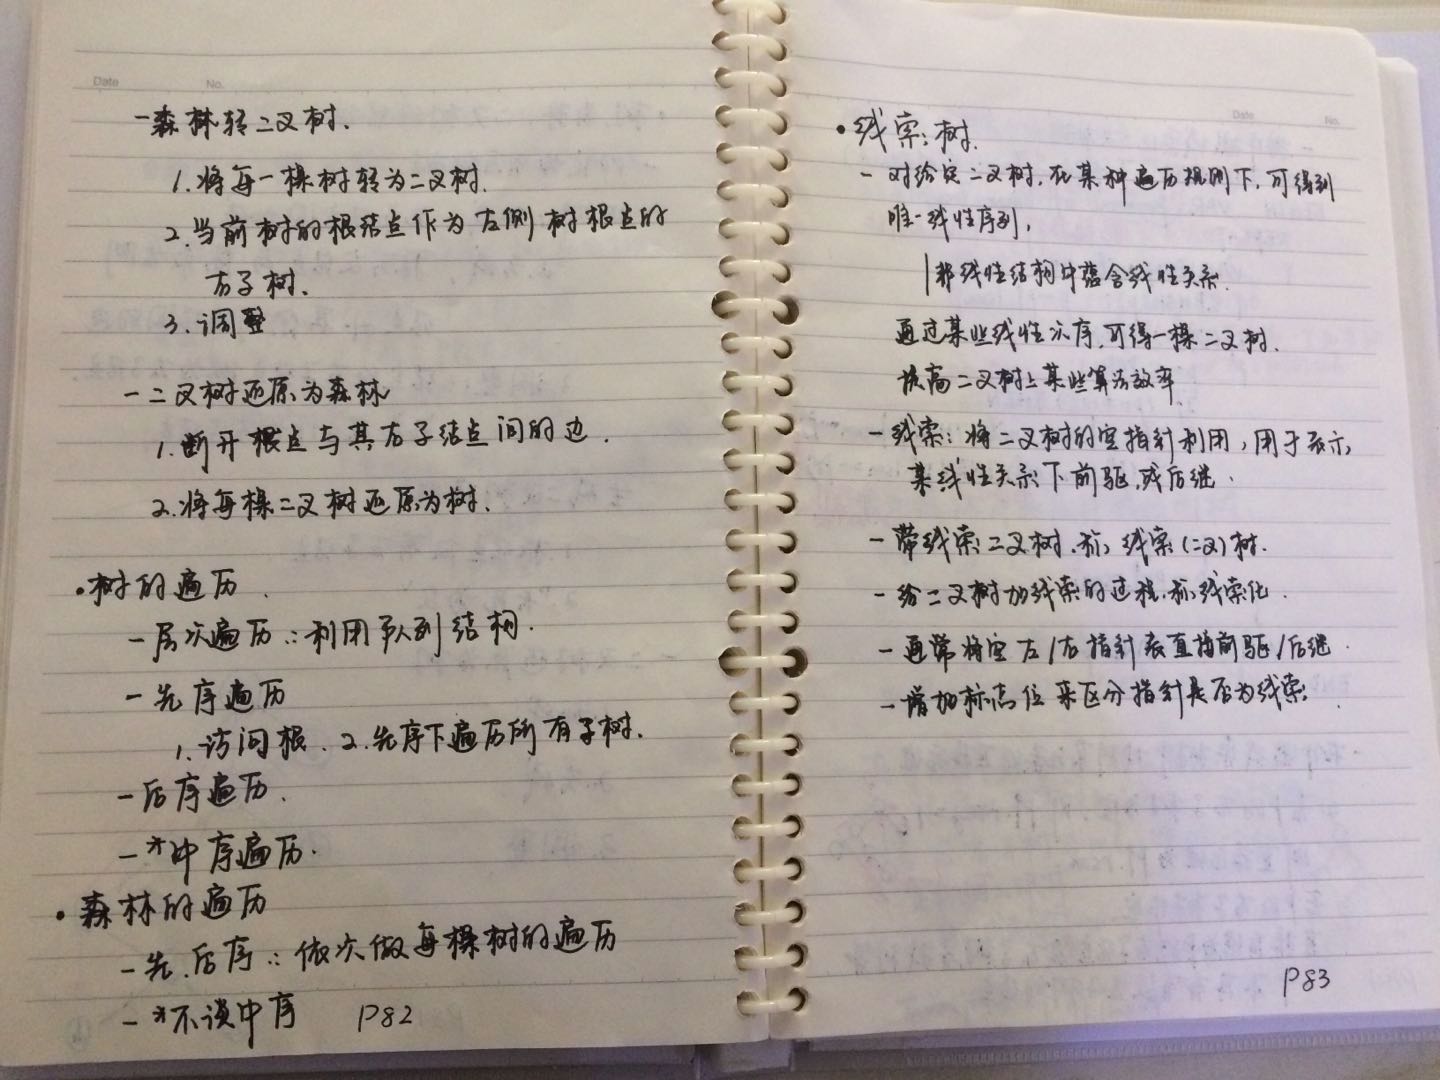 Date No.
-森林转二叉树.
1.将每一棵树转为二叉树.
2.当前树的根结点作为左侧树根点的
右子树.
3.调整
-二叉树还原为森林
1.断开根点与其右子结点间的边.
2.将每棵二叉树还原为树.
•树的遍历.
-层次遍历:利用队列结构.
-先序遍历
1.访问根.2.先序下遍历所有子树.
-后序遍历.
-*中序遍历.
•森林的遍历
-先.后序:依次做每棵树的遍历
-*不谈中序 P82
Date No.
•线索树.
-对给定二叉树,在某种遍历规则下,可得到
唯一线性序列,
|非线性结构中蕴含线性关系.
通过某些线性次序,可得一棵二叉树.
提高二叉树上某些算法效率
-线索:将二叉树的空指针利用,用于表示,
某线性关系下前驱,或后继.
-带线索二叉树.称,线索(二叉)树.
-给二叉树加线索的过程.称,线索化.
-通常将空左/右指针表直接前驱/后继.
-增加标志位来区分指针是否为线索.
P83